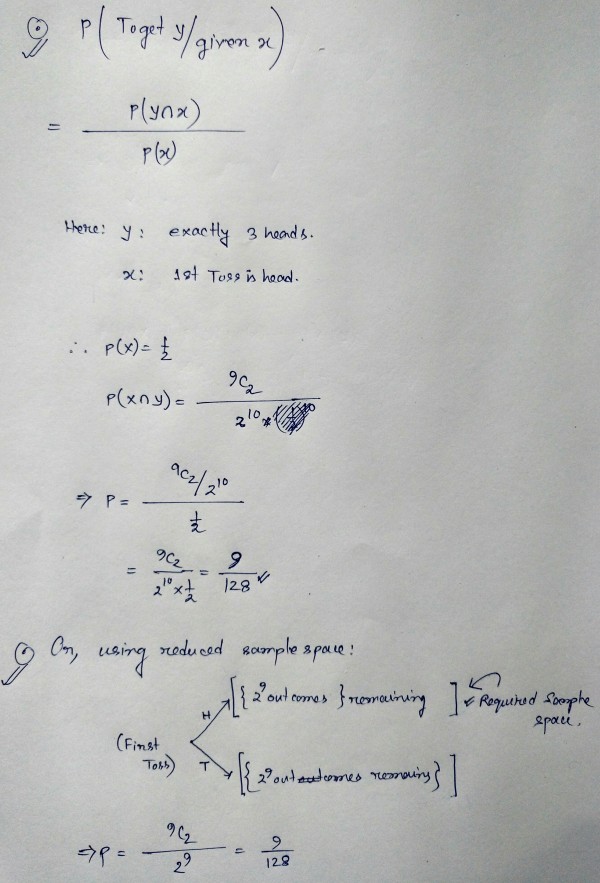 P(To get y/given x)
= P(y∩x) / P(x)
Here: y: exactly 3 heads.
x: 1st Toss is head.
∴ P(x) = 1/2
P(x∩y) = 9C2 / 2^10 *
⇒ P = (9C2/2^10) / (1/2)
= 9C2 / (2^10 × 1/2) = 9/128
Or, using reduced sample space:
H [{2^9 outcomes} remaining] Required Sample space.
(First Toss)
T [{2^9 outcomes remains}]
⇒ P = 9C2 / 2^9 = 9/128